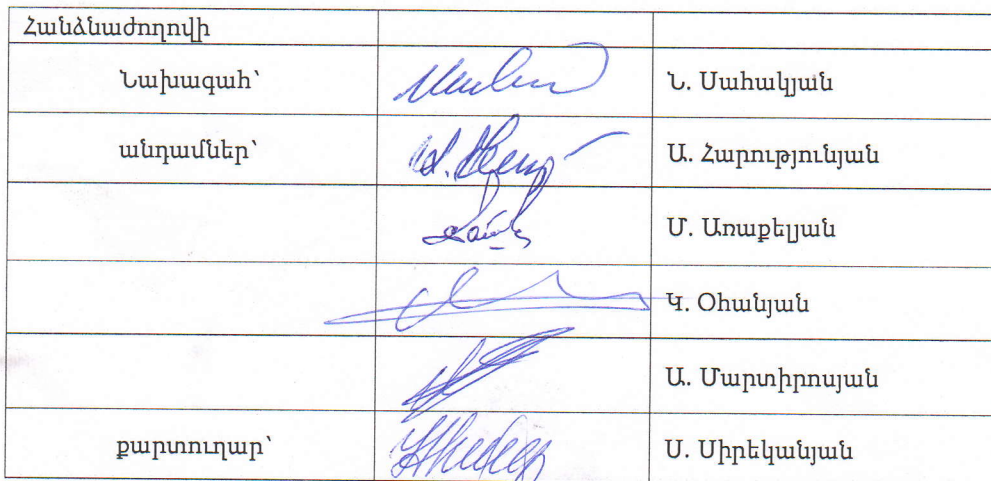 Հանձնաժողովի
Նախագահ՝ Ն. Սահակյան
անդամներ՝ Ա. Հարությունյան
Մ. Առաքելյան
Կ. Օհանյան
Ա. Մարտիրոսյան
քարտուղար՝ Ս. Սիրեկանյան